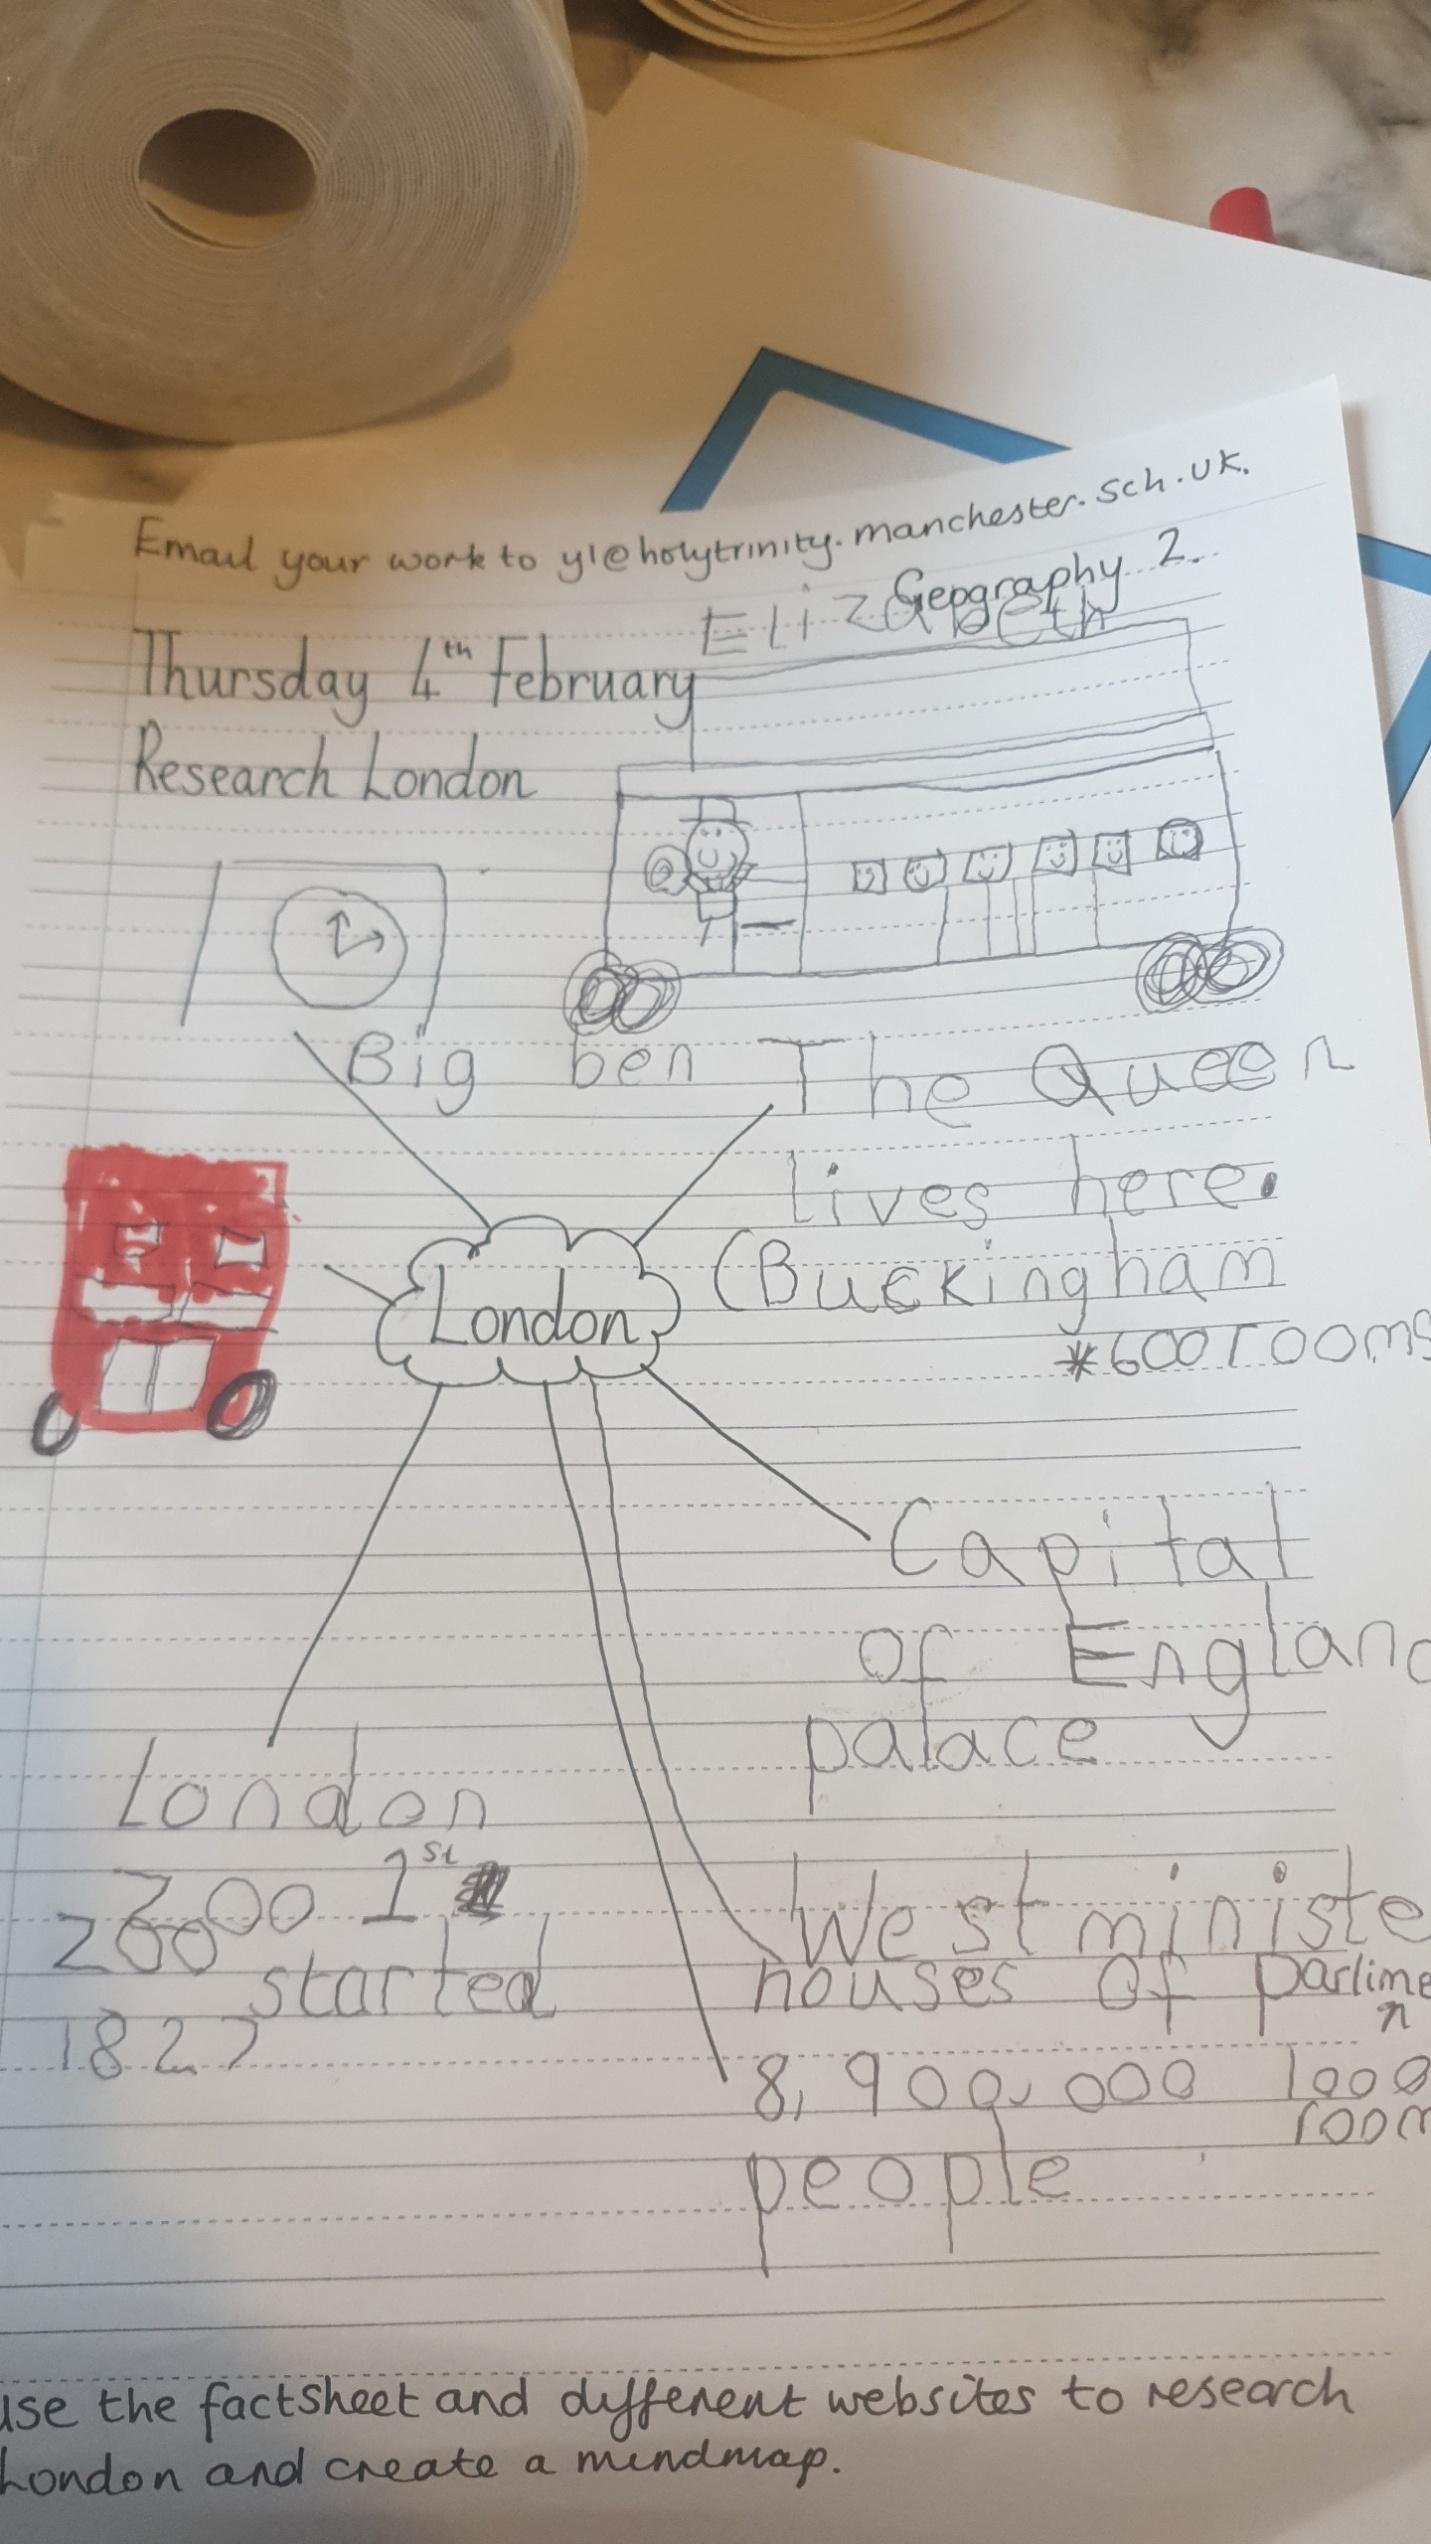 Email your work to y1@holytrinity.manchester.sch.uk.
Geography 2.
Elizabeth
Thursday 4th February
Research London
Big ben
The Queen
lives here.
(Buckingham
*600 rooms
London
Capital
of England
palace
London
Zoo 1st
zoo
started
1827
Westministe
houses of parlime
n
8,900,000
1000
room
people
use the factsheet and different websites to research
London and create a mindmap.